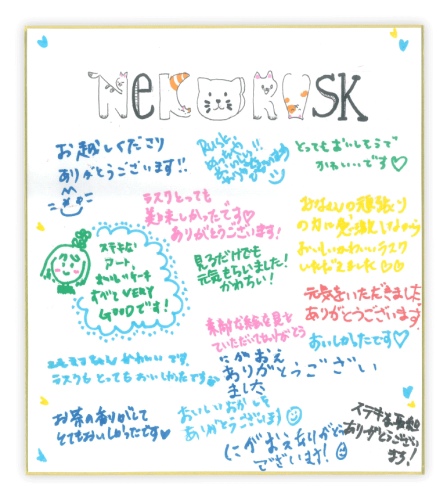 NeKORUSK
お越しくださり
ありがとうございます!!
Rusk
とってもおいしそうで
かわいいです♡
ラスクとっても
美味しかったです♡
ありがとうございます!
みなさんの頑張り
の力に感謝しながら
おいしいかわいいラスク
いただきました
ステキな
アート、
おいしいケーキ
すべて VERY
GOODです!
見るだけでも
元気もらいました!
かわいい!
元気をいただきました
ありがとうございます
おいしかったです♡
素敵な絵を見せ
ていただいてありがとう
にがおえ
ありがとうござい
ました
かわいいです。
ラスクもとってもおいしかったです
お茶の香りがして
とてもおいしかったです♡
おいしいおかしを
ありがとうございます
にがおえありがとう
でざいます!
ステキな
ありがとうござい
ます!